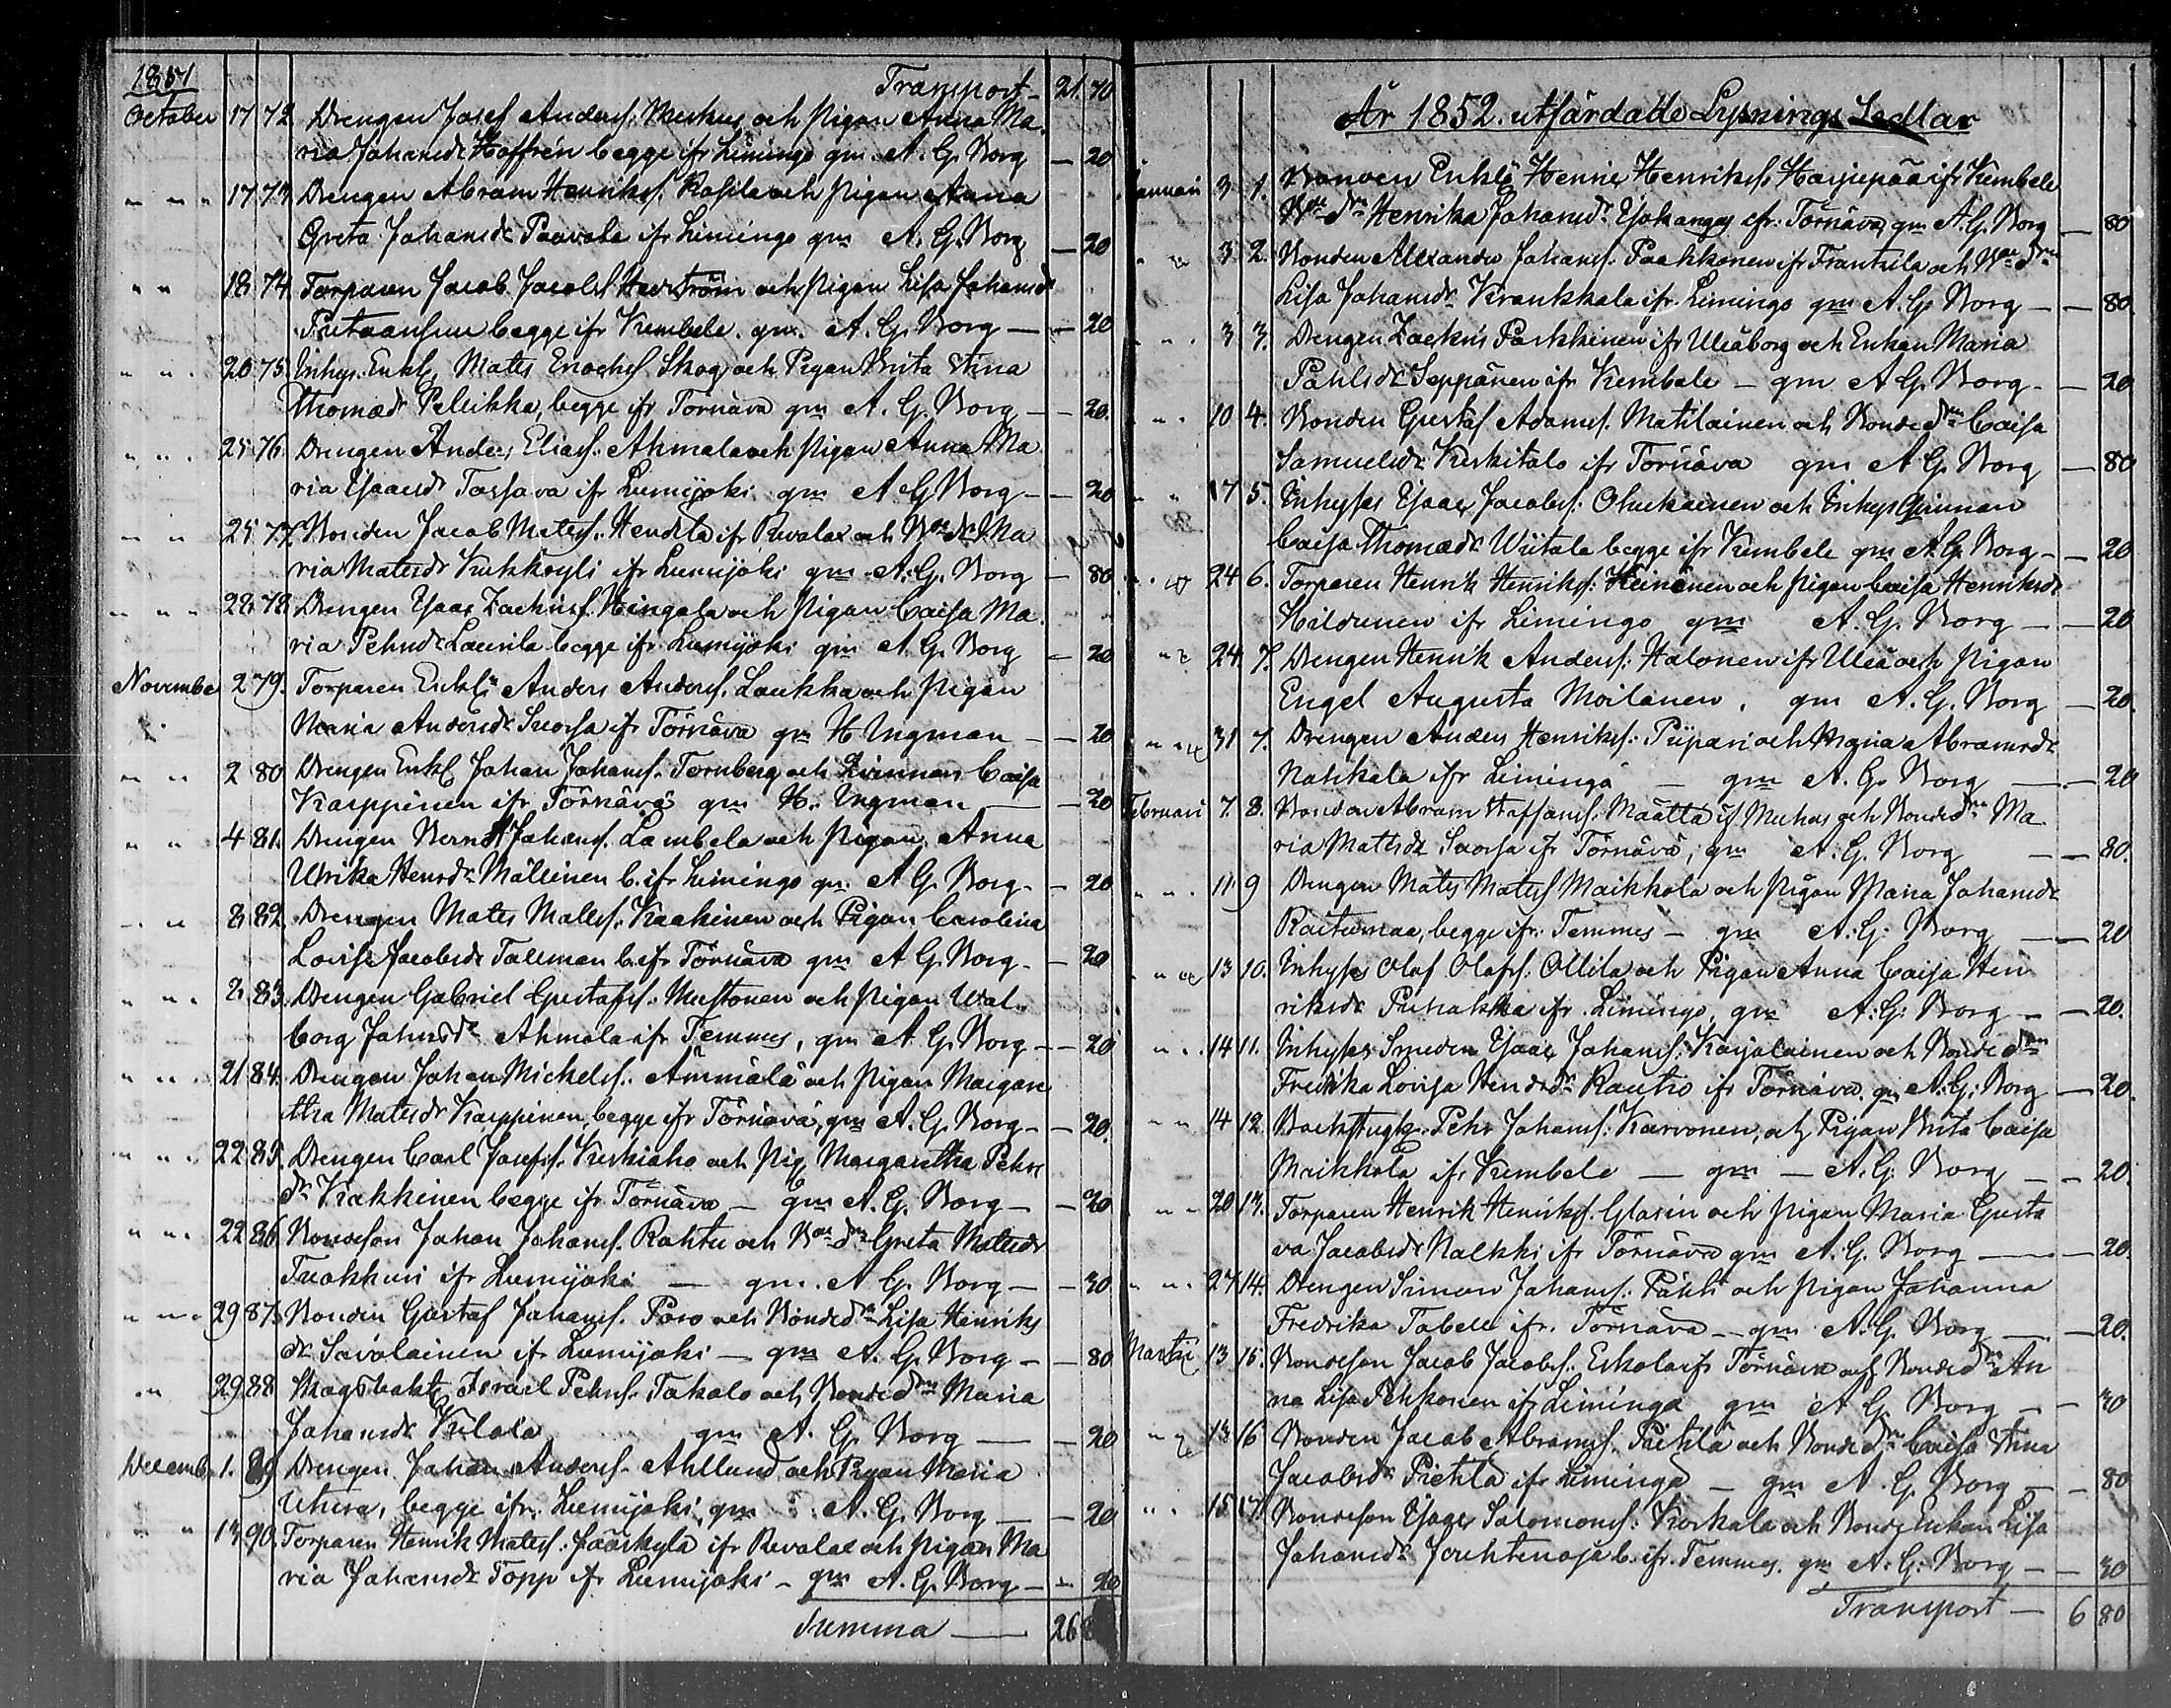 1851
Transport - 21. 70
October 17 72. Drengen Josef Anders. Merkus och Pigan Anna Ma
ria Johansdr Hoffrén begge ifr Limingo gm A. G. Borg — 20
" " " 17 73. Drengen Abram Henriks. och Pigan Anna
Greta Johansdr Paavola ifr Limingo gm A. G. Borg — 20
" " 18 74. Torparen Jacob Jacobs. Hedström och Pigan Lisa Johansdr
begge ifr Kembele. gm. A. G. Borg — — 20
" " . 20 75. Inhys. Enkl. Mats Enochs. Skog och Pigan Brita Stina
Thomædr Pellikka, begge ifr Törnävä gm A. G. Borg — — 20.
" " . 25 76. Drengen Anders Elias. Ahmala och Pigan Anna Ma
ria Isaacsdr Tassava ifr Lumijoki gm A G Borg — — 20
" " 25 77. Bonden Jacob Mats. Hendila ifr Revolax och Bdedr Ma
ria Matsdr Kukkoyli ifr Lumijoki gm A. G. Borg — 80
" " " 28 78. Drengen Isaac Zachris. Hingala och Pigan Caisa Ma
ria Pehrsdr Laurila begge ifr Lumijoki gm A. G. Borg — 20
November 2 79. Torparen Enkl. Anders Anders. Laukka och Pigan
Maria Andersdr Suorsa ifr Törnävä gm H Ungman — — 20
" " 2 80 Drengen Enkl Johan Johans. Tornberg och Qvinnan Caisa
Karppinen ifr Törnävä gm H. Ungman — — 20
" " 4 81. Drengen Bernd Johans. Lambela och Pigan Anna
Ulrika Henrsdr Mällinen b. ifr Limingo gm. A G. Borg - — 20
" " 8 82. Drengen Mats Mats. Kaakinen och Pigan Carolina
Lovisa Jacobsdr Tallman b. ifr Törnävä gm A G. Borg - — 20
" " . 8 83. Drengen Gabriel Gustafs. Mustonen och Pigan Wal
borg Johnsdr Ahmala ifr Temmes, gm A G. Borg — — 20
" " . 21 84. Drengen Johan Mickels. Ämmälä och Pigan Margare
tha Matsdr Karppinen, begge ifr Törnävä, gm A. G. Borg — — 20.
" " . 22 85. Drengen Carl Josefs. Keskiaho och Pig Margaretha Pehrs
dr Kakkinen begge ifr Törnävä — gm A. G. Borg — — 20
" " . 22 86. Bondeson Johan Johans. Rahtu och Bdedr Greta Matsdr
Tuokkuri ifr Lumijoki — gm. A G. Borg — — 30
" " . 29 87. Bonden Gustaf Johans. Poro och Bondedr Lisa Henriks
dr Savolainen ifr Lumijoki — gm A. G. Borg — — 80
" " 29 88 Skogsvakt. Israel Pehrs. Takalo och Bondedr Maria
Johansdr Kilola gm A. G. Borg — — 20
Decemb. 1. 89 Drengen Johan Anders. Ahllund och Pigan Maria
begge ifr. Lumijoki, gm A. G. Borg — — 20
" 13 90. Torparen Henrik Mats. Jääskylä ifr Revolax och Pigan Ma
ria Johansdr Topp ifr Lumijoki - gm A. G. Borg — — 20
Summa — 26
År 1852. utfärdade Lysnings Sedlar
Januari 3 1. Bonden Enkl. Henric Henriks. Harjupää ifr Kembele
Bde dr Henrika Johansdr ifr. Törnävä, gm A. G. Borg — 80
" " 3 2. Bonden Alexander Johans. Paakkonen ifr Frantsila och Bdedr
Lisa Johansdr Krankkala ifr. Limingo gm A. G. Borg — — 80.
" " . 3 3. Drengen Zachris Parkkinen ifr Uleåborg och Enkan Maria
Pahlsdr Seppänen ifr Kembele — gm. A G. Borg — — 20
" " . 10 4. Bonden Gustaf Adams. Matilainen och Bondedr Caisa
Samuelsdr Keskitalo ifr Törnävä gm A G. Borg — 80
" " 17 5. Inhyses Isaac Jacobs. Ohukainen och Inhys Qvinnan
Caisa Thomædr Wiitala begge ifr Kembele gm A. G. Borg — — 20
" " 24 6. Torparen Henrik Henriks. Heinänen och Pigan Caisa Henriksdr
Hildunen ifr Limingo gm A. G. Borg — — 20
" " 24. 7. Drengen Henrik Anders. Halonen ifr Uleå och Pigan
Engel Augusta Moilanen. gm A. G. Borg — 20.
" " 31 7. Drengen Anders Henriks. Piipari och Maria Abramsdr
Nahkala ifr Limingå — gm A. G. Borg — — 20
Februari 7. 8. Bonden Abram Staffans. Määttä if Muhos och Bondedr Ma
ria Matsdr Suorsa ifr Törnävä, gm A. G. Borg — — 80.
" " . 11 9 Drengen Mats Mats Maikkola och Pigan Maria Johansdr
Raitumaa, begge ifr. Temmes — gm A. G. Borg — — 20
" " 13 10. Inhyses Olof Olofs. Ollila och Pigan Anna Caisa Hen
riksdr Puhakka ifr. Limingo, gm A. G. Borg — — 20.
" " . 14 11. Inhyses Smeden Isaac Johans. Karjalainen och Bondedr
Fredrika Lovisa Hendrsdr Rautio ifr Törnävä, gm A. G. Borg — 20.
" " 14 12. Backstug. Pehr Johans. Karvonen, och Pigan Brita Caisa
Maikkola ifr Kembele — gm — A. G. Borg — — 20.
" " 20 13. Torparen Henrik Henriks. Glasin och Pigan Maria Gusta
va Jacobsdr Nalkki ifr Törnävä gm A. G. Borg — — 20.
" " . 27 14. Drengen Simon Johans. Päkki och Pigan Johanna
Fredrika Tabell ifr. Törnävä — gm A. G. Borg — — 20.
Martii 13 15. Bondeson Jacob Jacobs. Eskola ifr Törnävä och Bondedr An
na Lisa Pekkonen ifr Limingå gm A G Borg — — 30
" " 13 16 Bonden Jacob Abrams. Pietilä och Bondedr Caisa Stina
Jacobsdr Pietilä ifr Limingo — gm A. G. Borg — — 80
" " . 15 17. Bondeson Isaac Salomons. Korkala och Bonde Enkan Lisa
Johansdr Jouhtenoja b. ifr. Temmes. gm A. G. Borg — — 30
Transport — 6 80